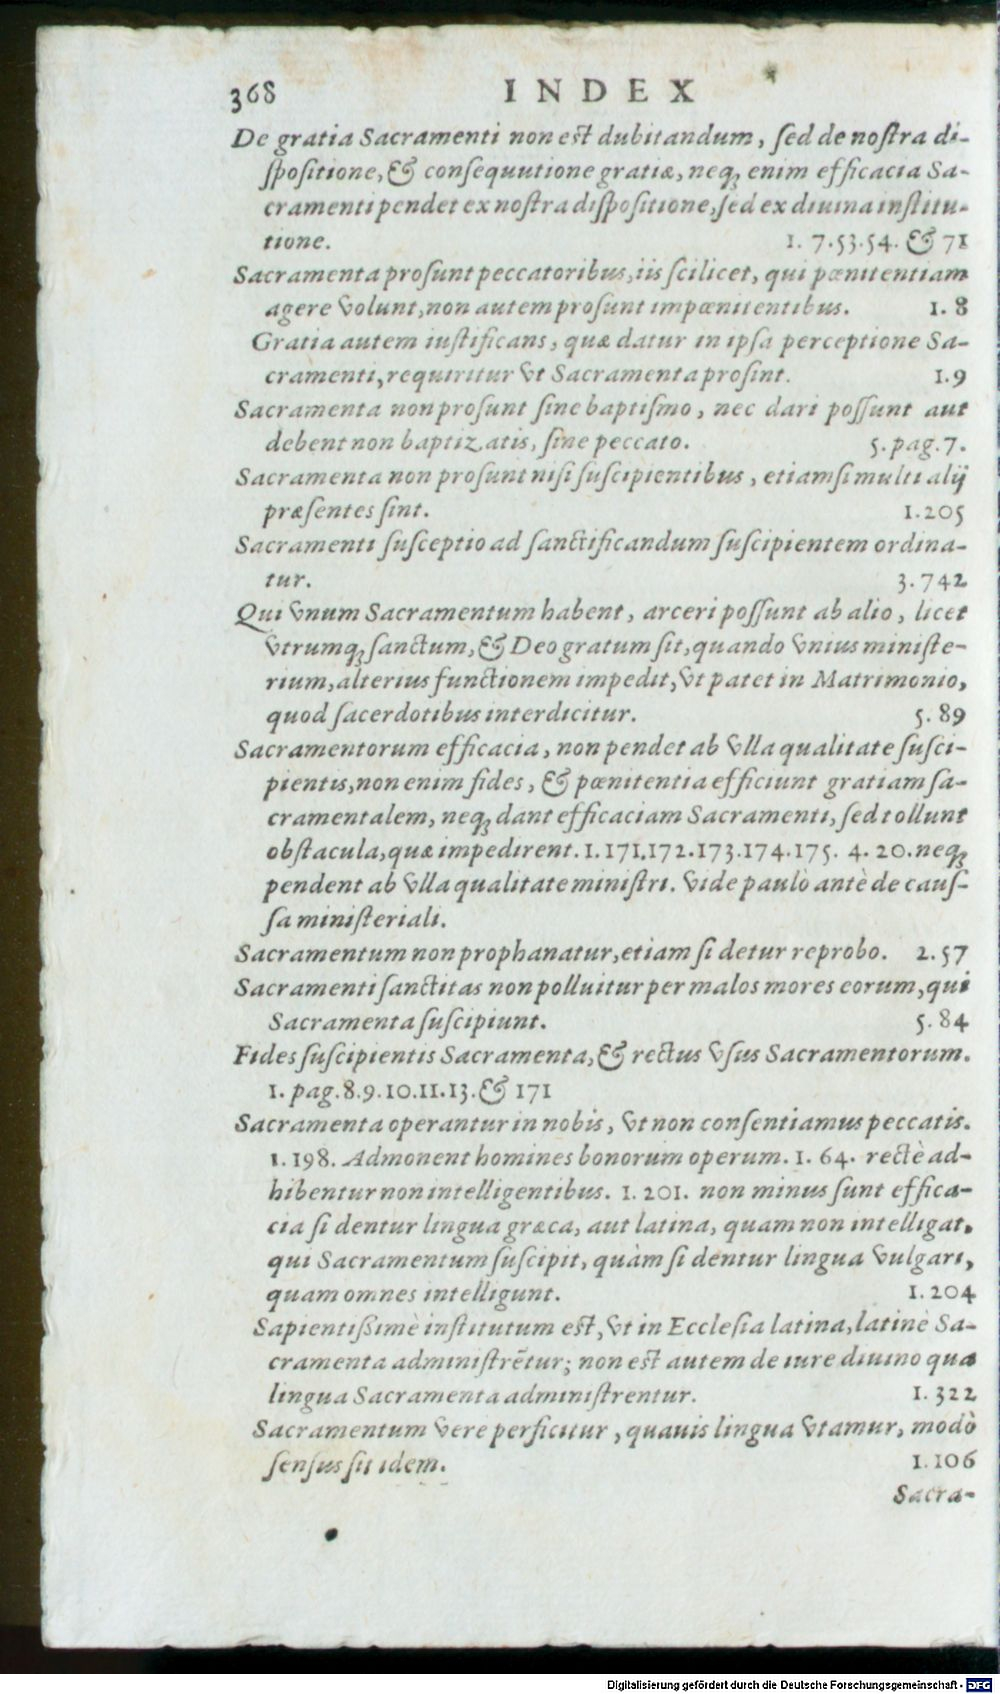 368 INDEX
De gratia Sacramenti non est dubitandum, sed de nostra di-
spositione, & consequutione gratiæ, neqꝫ enim efficacia Sa-
cramenti pendet ex nostra dispositione, sed ex diuina institu-
tione. 1. 7.53.54. & 71
Sacramenta prosunt peccatoribus, iis scilicet, qui pœnitentiam
agere volunt, non autem prosunt impœnitentibus. 1. 8
Gratia autem iustificans, quæ datur in ipsa perceptione Sa-
cramenti, requiritur vt Sacramenta prosint. 1.9
Sacramenta non prosunt sine baptismo, nec dari possunt aut
debent non baptizatis, sine peccato. 5. pag.7.
Sacramenta non prosunt nisi suscipientibus, etiamsi multi alij
præsentes sint. 1.205
Sacramenti susceptio ad sanctificandum suscipientem ordina-
tur. 3.742
Qui vnum Sacramentum habent, arceri possunt ab alio, licet
vtrumqꝫ sanctum, & Deo gratum sit, quando vnius ministe-
rium, alterius functionem impedit, vt patet in Matrimonio,
quod sacerdotibus interdicitur. 5. 89
Sacramentorum efficacia, non pendet ab vlla qualitate susci-
pientis, non enim fides, & pœnitentia efficiunt gratiam sa-
cramentalem, neqꝫ dant efficaciam Sacramenti, sed tollunt
obstacula, quæ impedirent. 1.171.172.173.174.175. 4. 20. neqꝫ
pendent ab vlla qualitate ministri. vide paulò antè de caus-
sa ministeriali.
Sacramentum non prophanatur, etiam si detur reprobo. 2.57
Sacramenti sanctitas non polluitur per malos mores eorum, qui
Sacramenta suscipiunt. 5. 84
Fides suscipientis Sacramenta, & rectus vsus Sacramentorum.
1. pag.8.9.10.11.13. & 171
Sacramenta operantur in nobis, vt non consentiamus peccatis.
1.198. Admonent homines bonorum operum. 1. 64. rectè ad-
hibentur non intelligentibus. 1. 201. non minus sunt effica-
cia si dentur lingua græca, aut latina, quam non intelligat,
qui Sacramentum suscipit, quàm si dentur lingua vulgari,
quam omnes intelligunt. 1.204
Sapientißimè institutum est, vt in Ecclesia latina, latinè Sa-
cramenta administrẽtur; non est autem de iure diuino qua
lingua Sacramenta administrentur. 1. 322
Sacramentum vere perficitur, quauis lingua vtamur, modò
sensus sit idem. 1.106
Sacra-
Digitalisierung gefördert durch die Deutsche Forschungsgemeinschaft - DFG